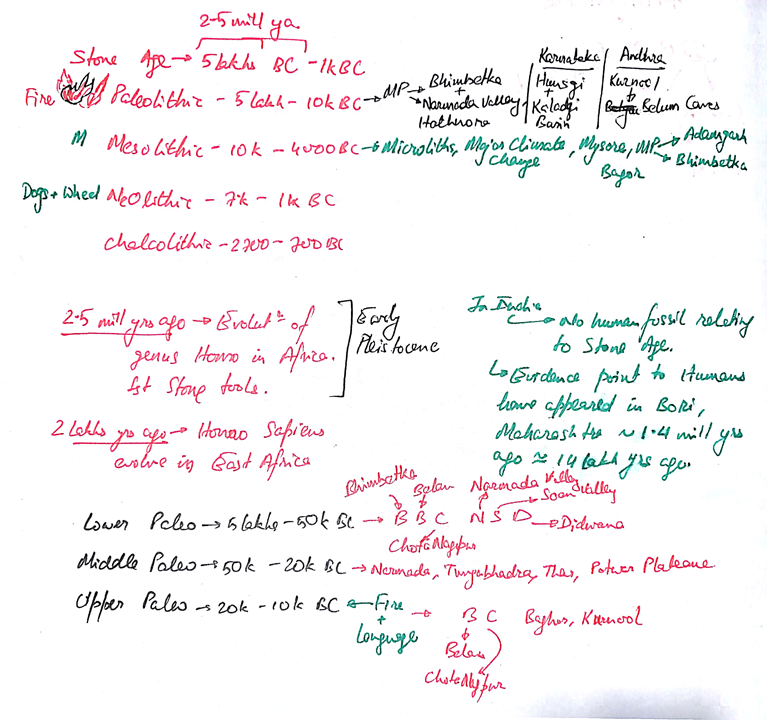 2-5 mill ya.
Stone Age → 5 lakhs BC - 1k BC
Karnataka
Andhra
Fire
Paleolithic - 5 lakh - 10k BC → MP → Bhimbetka + Narmada Valley Hathnora
Hunsgi + Kaladgi Basin
Kurnool ↓ Belum Caves
M
Mesolithic - 10k - 4000 BC → Microliths, Major Climate Change, Mysore, MP → Adamgarh → Bhimbetka
Bagor
Dogs + Wheel
Neolithic - 7k - 1k BC
Chalcolithic - 2700 - 700 BC
2-5 mill yrs ago → Evolutn of
genus Homo in Africa.
1st Stone tools.
Early
Pleistocene
2 lakhs yrs ago → Homo Sapiens
evolve in East Africa
In India
→ No human fossil relating
to Stone Age.
↳ Evidence point to Humans
have appeared in Bori,
Maharashtra ~ 1.4 mill yrs
ago ≈ 14 lakh yrs ago.
Bhimbetka Belan Narmada Valley
Soan Valley
Lower Paleo → 5 lakhs - 50k BC → B B C N S D → Didwana
Chota Nagpur
Middle Paleo → 50k - 20k BC → Narmada, Tungabhadra, Thar, Potwar Plateau
Upper Paleo → 20k - 10k BC ← Fire + Language → B C Baghor, Kurnool
Belan
Chota Nagpur